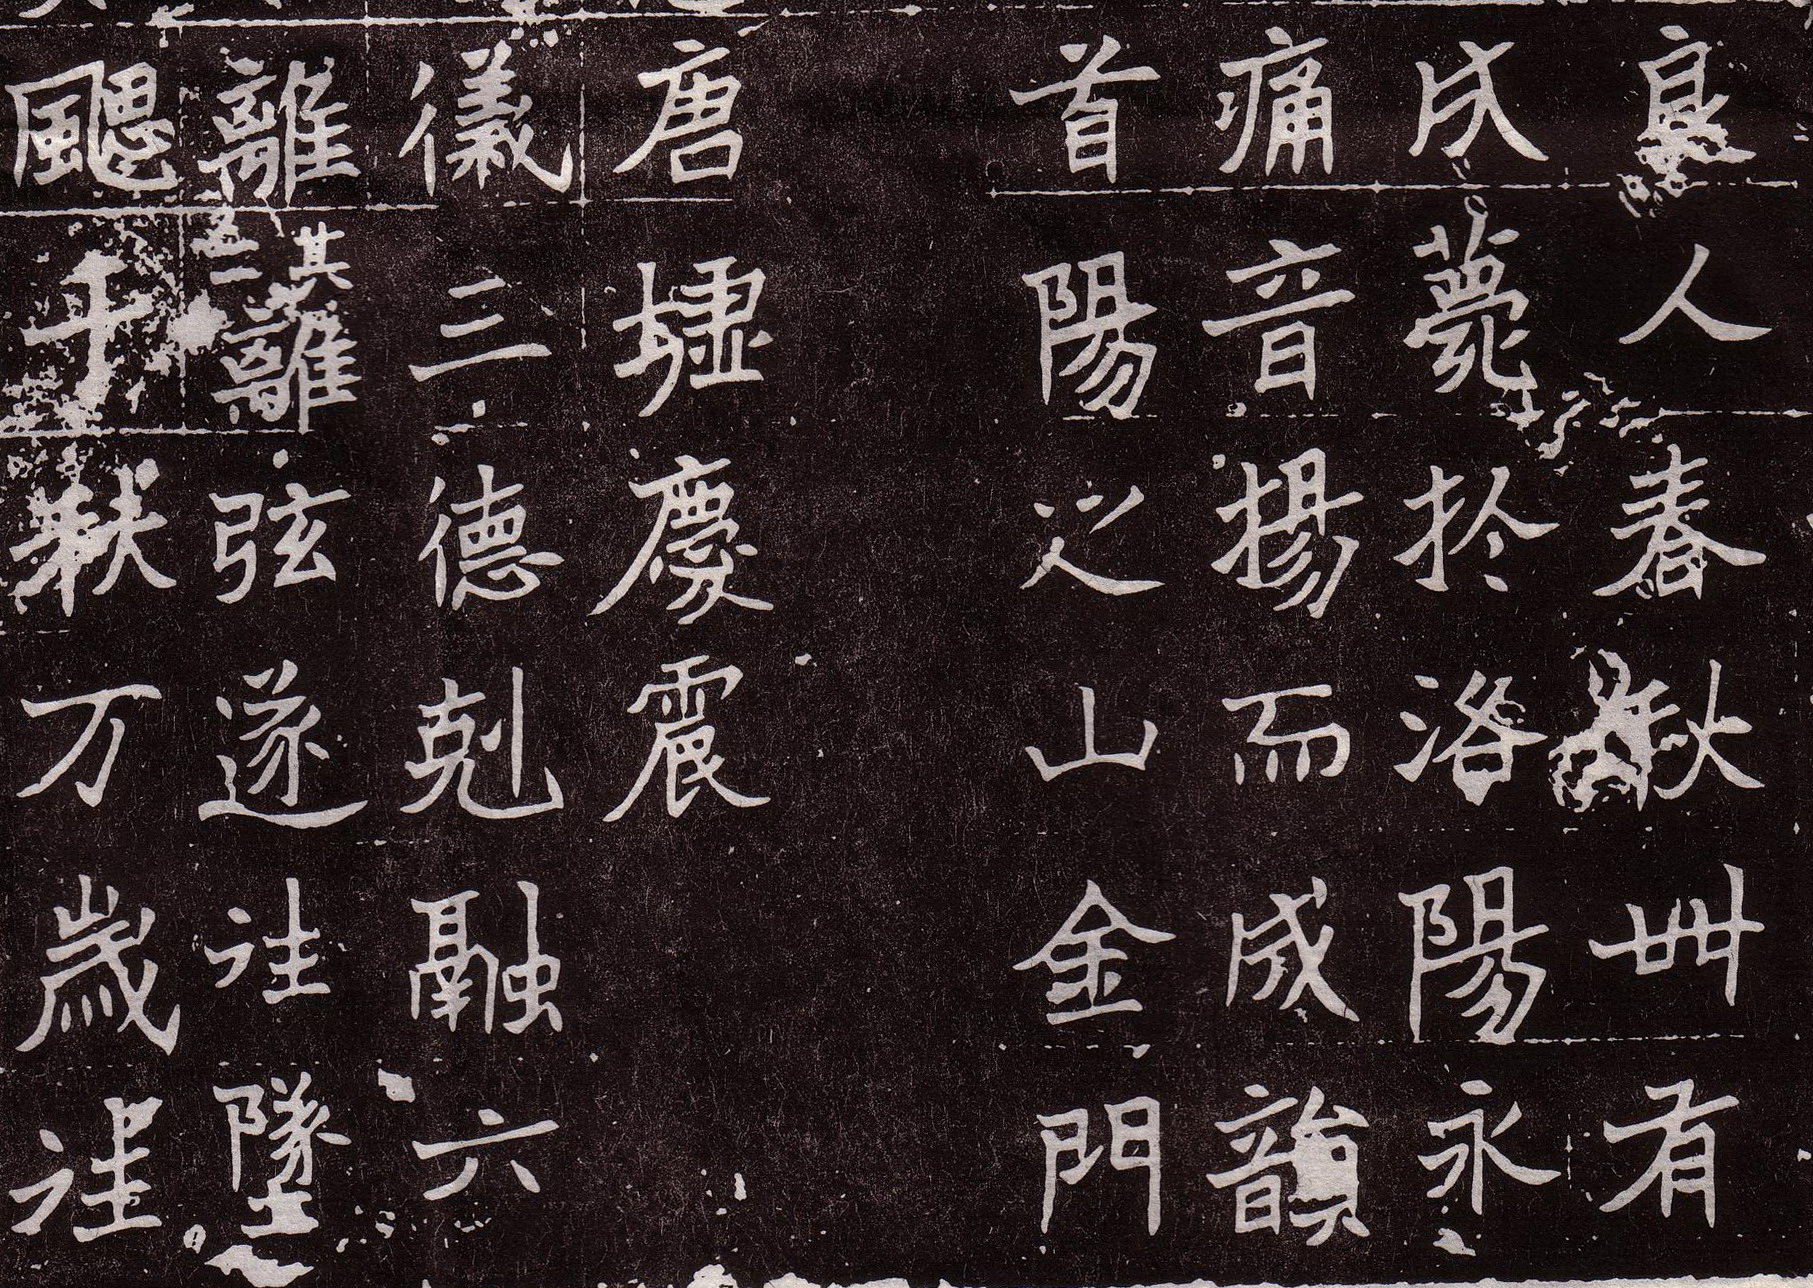 良人春秋卌有
戌薨於洛陽永
痛音揚而烕韻
首陽之山金門
唐墟慶震
儀三德剋融六
離其離弦遂往墜
颸千秋万歲往